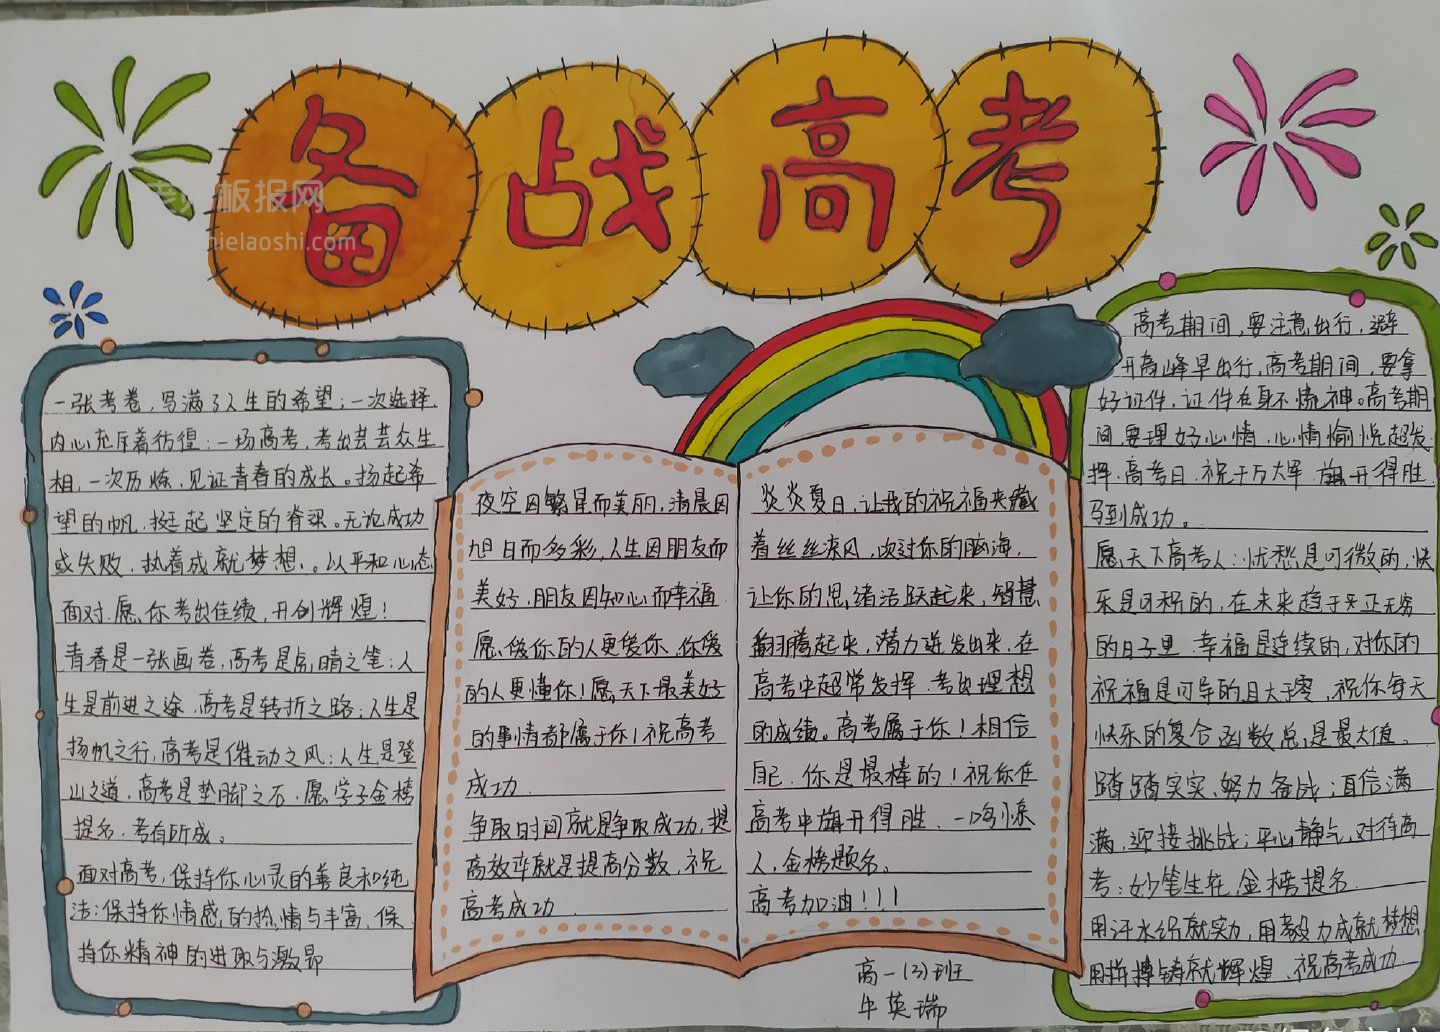 备战高考
板报网
nielaoshi.com
一张考卷，写满了人生的希望；一次选择，
内心充斥着彷徨；一场高考，考出芸芸众生
相，一次历炼，见证青春的成长。扬起希
望的帆，挺起坚定的脊梁。无论成功
或失败，执着成就梦想、。以平和心态
面对，愿你考出佳绩，开创辉煌！
青春是一张画卷，高考是点睛之笔；人
生是前进之途，高考是转折之路；人生是
扬帆之行，高考是催动之风；人生是登
山之道，高考是垫脚之石，愿学子金榜
提名，考有所成。
面对高考，保持你心灵的善良和纯
洁；保持你情感的热情与丰富，保
持你精神的进取与激昂
夜空因繁星而美丽，清晨因
旭日而多彩，人生因朋友而
美好，朋友因知心而幸福
愿爱你的人更爱你，你爱
的人更懂你！愿天下最美好
的事情都属于你！祝高考
成功．
争取时间就是争取成功，提
高效率就是提高分数，祝
高考成功
炎炎夏日，让我的祝福夹藏
着丝丝凉风，吹过你的脑海，
让你的思绪活跃起来，智慧
翻腾起来，潜力迸发出来，在
高考中超常发挥，考出理想
的成绩。高考属于你！相信
自己，你是最棒的！祝你在
高考中旗开得胜，一鸣惊
人，金榜题名。
高考加油！！！
高考期间，要注意出行，避
开高峰早出行，高考期间，要拿
好证件，证件在身不慌神。高考期
间，要理好心情，心情愉悦超发
挥，高考日，祝千万大军，旗开得胜
马到成功。
愿天下高考人：忧愁是可微的，快
乐是可积的，在未来趋于正无穷
的日子里，幸福是连续的，对你的
祝福是可导的且大于零，祝你每天
快乐的复合函数总是最大值。
踏踏实实，努力备战；自信满
满，迎接挑战；平心静气，对待高
考；妙笔生花，金榜提名
用汗水织就实力，用毅力成就梦想
用拼搏铸就辉煌，祝高考成功．
高一（3）班
牛英瑞